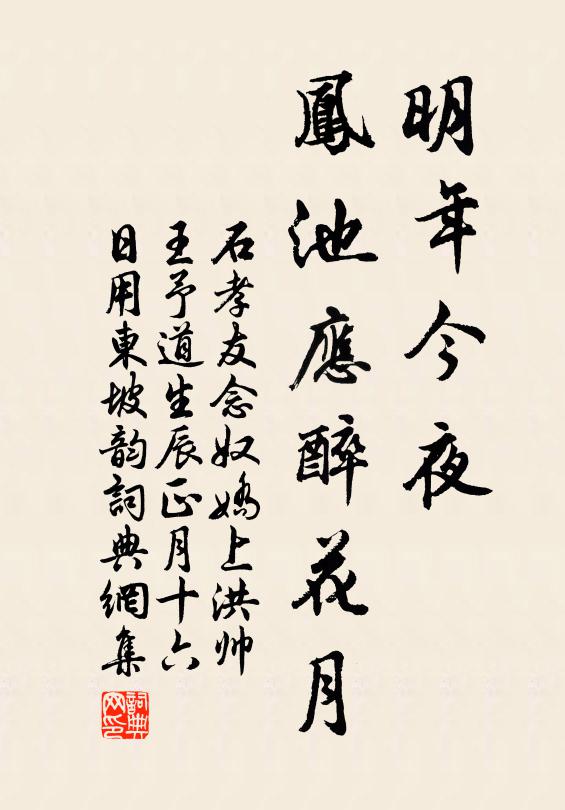 明年今夜
鳳池應醉花月
石孝友念奴嬌上洪帅
王予道生辰正月十六
日用東坡韵詞典網集
詞典网印